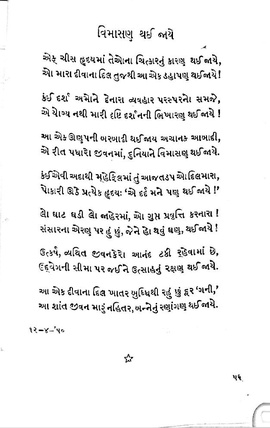 વિમાસણ થઈ જાયે
એક ચીસ હૃદયમાં તેઓના ચિત્કારનું કારણ થઈ જાયે,
એ મારા દીવાના દિલ તુજથી આ એક ડહાપણ થઈ જાયે!
કંઈ દર્શ અમોને દેનારા વ્યવહાર પરસ્પરનો સમજે,
એ યોગ્ય નથી મારી દૃષ્ટિ દર્શનની ભિખારણ થઈ જાયે!
આ એક ઊણપની બરબાદી થઈ જાય અચાનક આબાદી,
એ રીત પધારો જીવનમાં, દુનિયાને વિમાસણ થઈ જાયે!
કંઈ એવી અદાથી મહેફિલમાં તું આજ તડપ ઓ દિલ મારા,
પોકારી ઊઠે પ્રત્યેક હૃદય: 'એ દર્દ મને પણ થઈ જાયે!'
લો ઘાટ ઘડી લો જાહેરમાં, ઓ ગુપ્ત પ્રવૃત્તિ કરનારા!
સંસારના એરણ પર હું છું, જેને હો થવું ઘણ, થઈ જાયે!
ઉત્કર્ષ, વ્યથિત જીવનકેરો આનંદ ટકી રહેવામાં છે,
ઉદ્વેગની સીમા પર જઈને ઉત્સાહનું રક્ષણ થઈ જાયે.
આ એક દીવાના દિલ ખાતર બુદ્ધિથી રહું છું દૂર 'ગની',
આ શાંત જીવન મારું નહિતર, બન્નેનું રણાંગણ થઈ જાયે.
૧૨-૪-'૫૦
૫૬